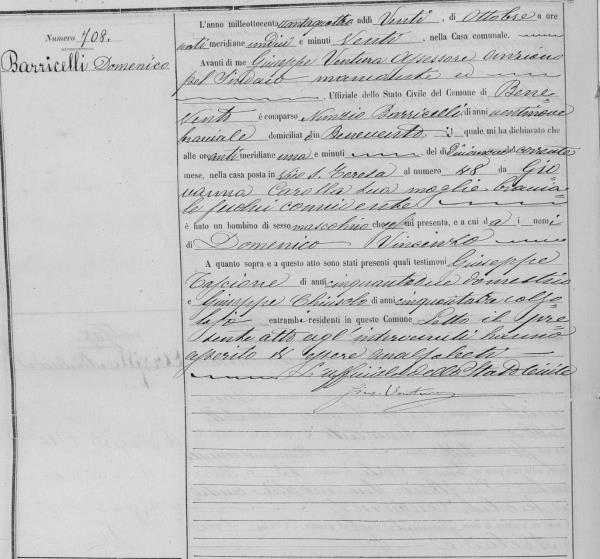 Numero 708.
Barricelli Domenico
L'anno milleottocento settantaquattro addì Venti, di Ottobre a ore
anti meridiane undici e minuti Venti, nella Casa comunale.
Avanti di me Giuseppe Ventura Assessore anziano
pel Sindaco
, Uffiziale dello Stato Civile del Comune di Bene=
vento è comparso Nunzio Barricelli di anni ventinove
bracciale domiciliato in Benevento il quale mi ha dichiarato che
alle ore anti meridiane una e minuti, del dì diciannove del corrente
mese, nella casa posta in Vico S. Teresa al numero 48 da Gio=
vanna Carolla sua moglie braccia=
le seco lui convivente
è nato un bambino di sesso mascolino che mi presenta, e a cui dà i nomi
di Domenico Vincenzo
A quanto sopra e a questo atto sono stati presenti quali testimoni Giuseppe
di anni domestico
e Giuseppe di anni cinquantatre calzo=
laio entrambi residenti in questo Comune Letto il pre=
sente atto agl'intervenuti hanno
asserito di essere analfabeti
L'uffiziale dello Stato Civile
Gius. Ventura